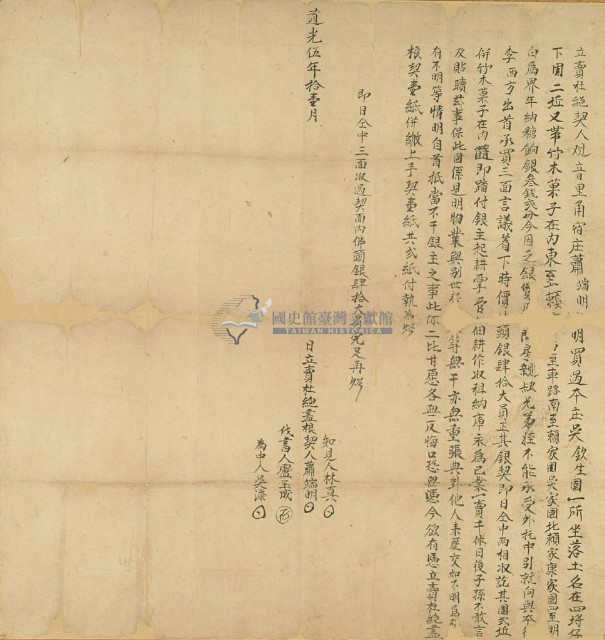 立賣杜絕契人觀音里角宿庄蕭端明
明買過本庄吳欽生園一所坐落土名在四埒仔
下園二坵又帶竹木菓子在內東至賴
至車路南至賴家園吳家園北賴家康家園四至明
白為界年納糖餉銀叁錢
今因乏銀
房親叔兄弟侄不能承受外托中引就向與本
李西方出首承買三面言議着下時價
頭銀肆拾大員正其銀契即日仝中兩相收訖其園
併竹木菓子在內隨即踏付銀主起耕掌管
佃耕作收租納庫永為己業一賣千休日後子孫不敢言
及貼贖茲事保此園係是明物業與別
等無干亦無重張典掛他人來歷交加不明為碍
有不明等情明自首抵當不干銀主之事此係
二比甘愿各無反悔口恐無憑今欲有憑立賣杜絕盡
根契壹紙併繳上手契壹紙共弍紙付執為炤
即日仝中三面收過契面內佛面銀肆拾大員完足再炤
知見人林真
道光伍年拾壹月
日立賣杜絕盡根契人蕭端明
代書人盧玉成
為中人吳漆
國史館臺灣文獻館
TAIWAN HISTORICA